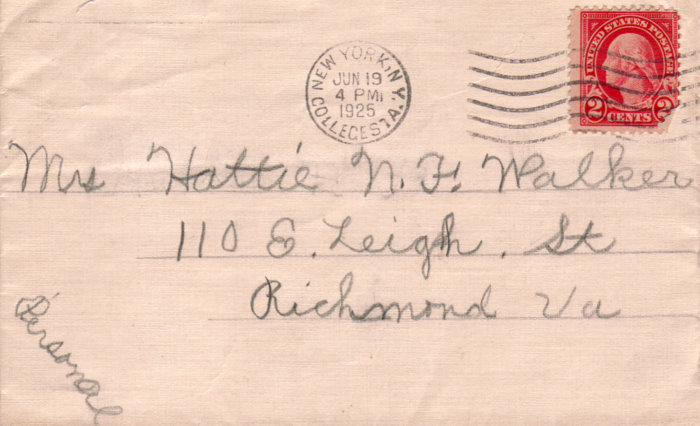 NEW YORK, N.Y.
JUN 19
4 PM
1925
COLLEGE STA.
UNITED STATES POSTAGE
2 CENTS 2
Mrs Hattie N. F. Walker
110 E. Leigh. St
Richmond Va
Personal